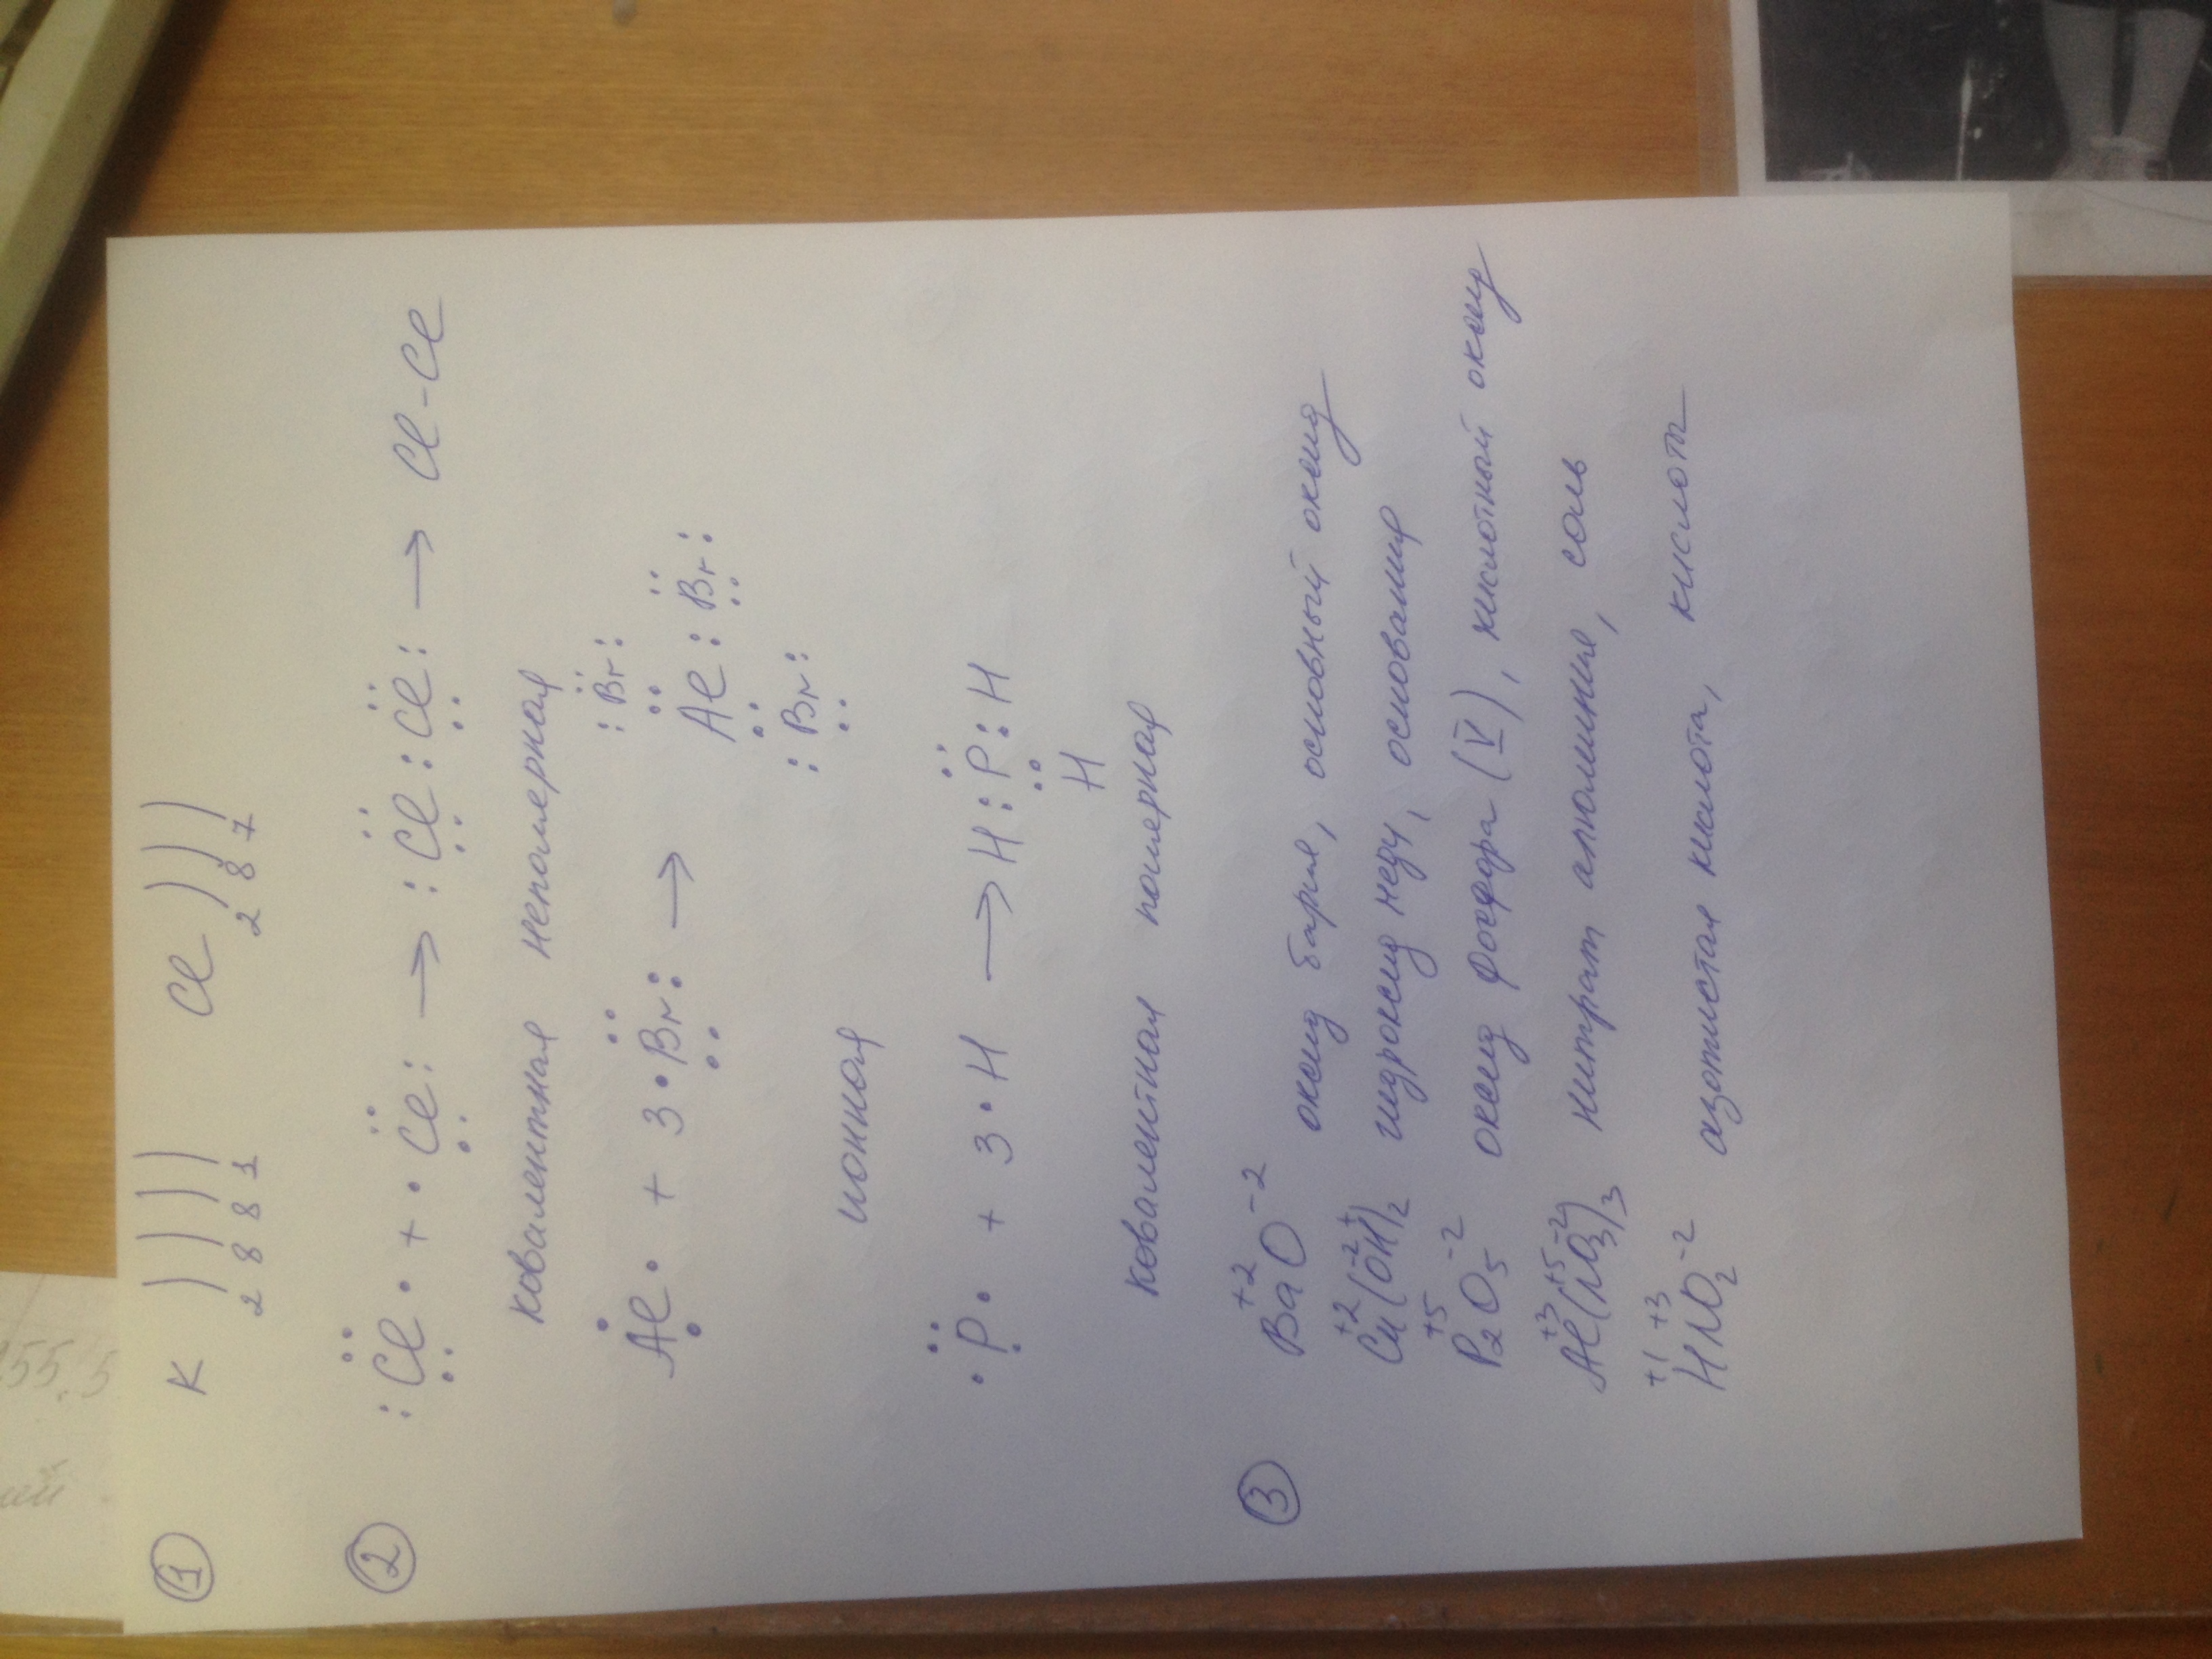 ① K ) ) ) ) Cl ) ) )
2 8 8 1 2 8 7
② :Cl· + ·Cl: → :Cl:Cl: → Cl-Cl
ковалентная неполярная
:Br:
Al· + 3·Br: → Al:Br:
:Br:
ионная
·P· + 3·H → H:P:H
H
ковалентная полярная
③ Ba⁺²O⁻² оксид бария, основный оксид
Cu⁺²(O⁻²H⁺)₂ гидроксид меди, основание
P₂⁺⁵O₅⁻² оксид фосфора (V), кислотный оксид
Al⁺³(N⁺⁵O₃⁻²)₃ нитрат алюминия, соль
H⁺¹N⁺³O₂⁻² азотистая кислота, кислоты
55.5
ий